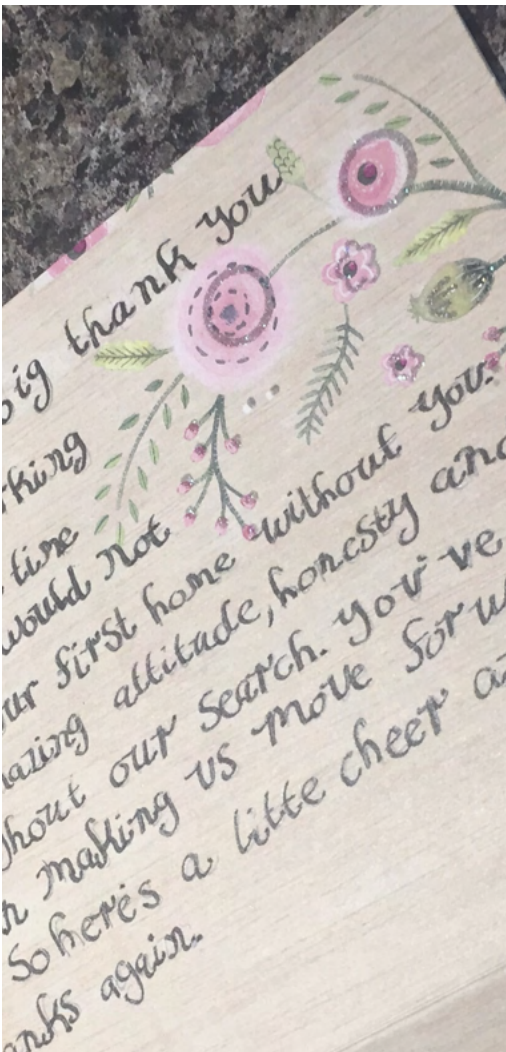 big thank you
rking
time
would not
our first home without you.
mazing attitude, honesty and
ghout our search. You've
making us move forw
So here's a litte cheer a
anks again.